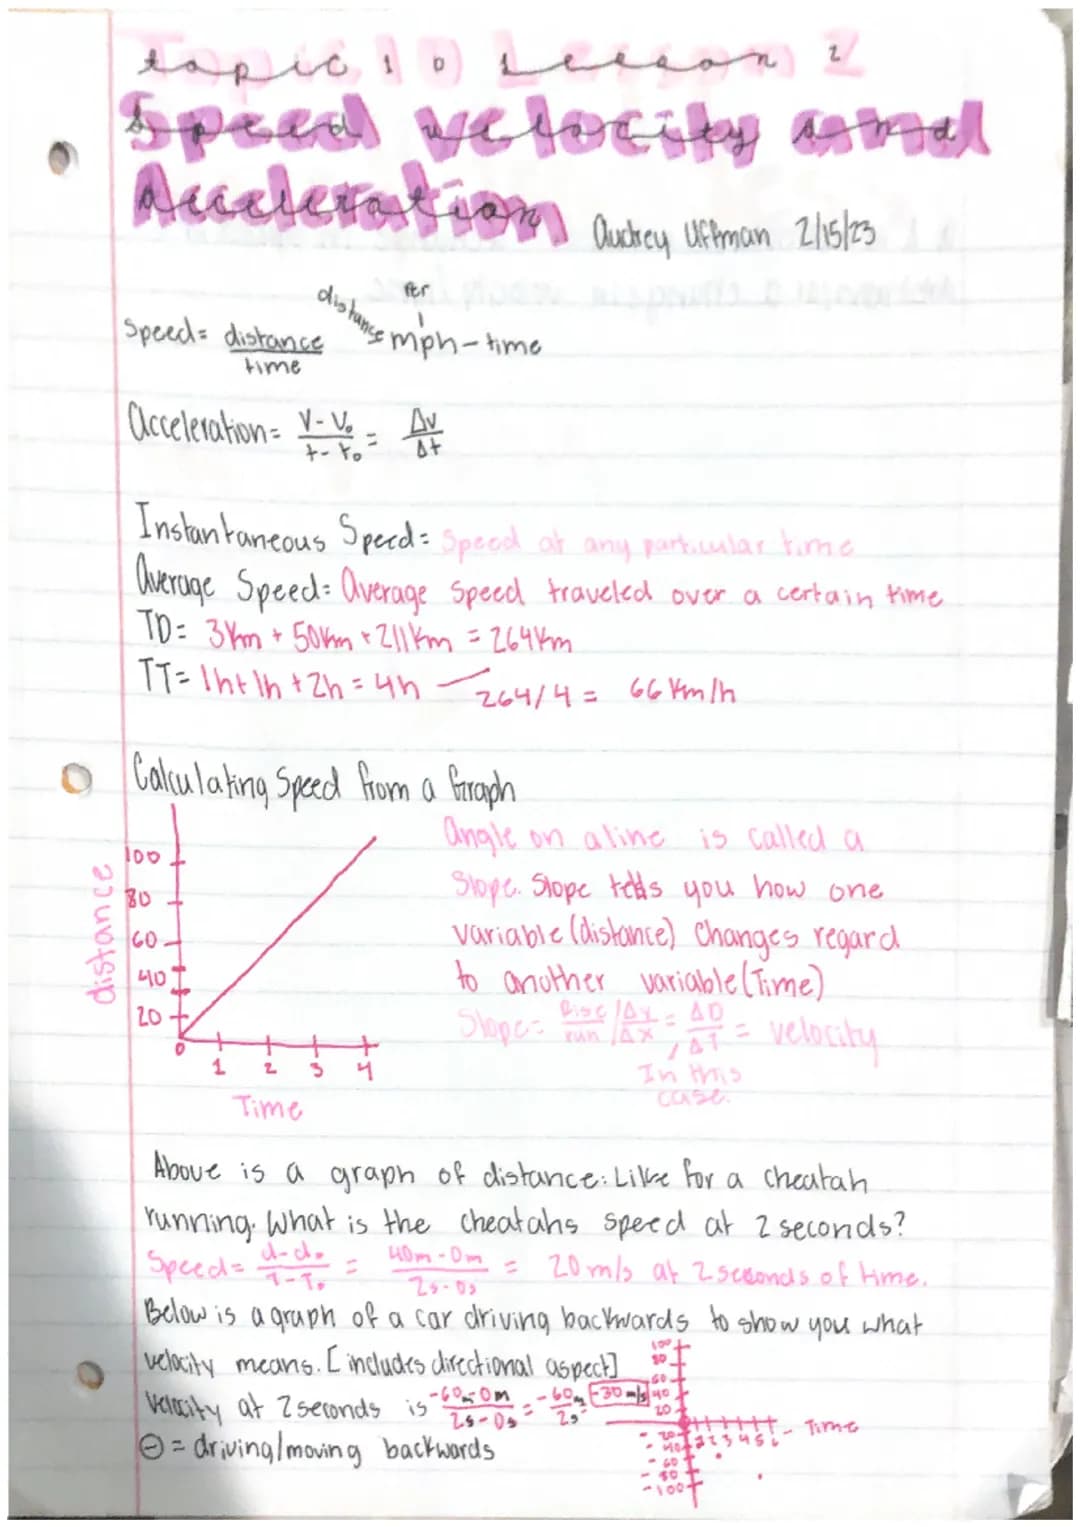 Topic 10 Lesson 2
Speed velocity and
Acceleration
Audrey Uffman 2/15/23
Speed= distance/time
distance mph-time
Per
Acceleration= V-V₀/t-t₀ = Δv/Δt
Instantaneous Speed= Speed at any particular time
Average Speed= Average Speed traveled over a certain time
TD= 3km + 50km + 211km = 264km
TT= 1h+1h+2h=4h — 264/4 = 66 km/h
Calculating Speed from a Graph
distance
100
80
60
40
20
0
1 2 3 4
Time
Angle on a line is called a
Slope. Slope tells you how one
variable (distance) Changes regard
to another variable (Time)
Slope= Rise/run / Δy/Δx = ΔD/ΔT = velocity
In this
case.
Above is a graph of distance: Like for a cheatah
running. What is the cheatahs speed at 2 seconds?
Speed= d-d₀/T-T₀ = 40m-0m/2s-0s = 20m/s at 2 seconds of time.
Below is a graph of a car driving backwards to show you what
velocity means. [includes directional aspect]
velocity at 2 seconds is -60m-0m/2s-0s = -60m/2s = -30 m/s
⊖ = driving/moving backwards
100
80
60
40
20
1 2 3 4 5 6 - Time
-20
-40
-60
-80
-100